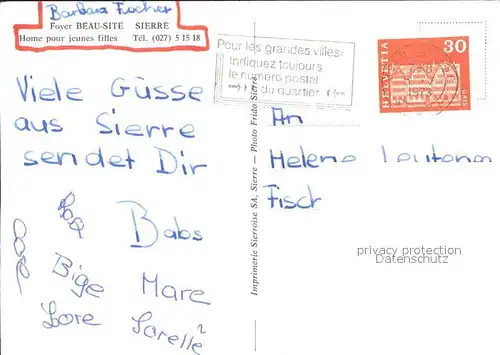 Barbara Fischer
Foyer BEAU-SITE SIERRE
Home pour jeunes filles Tél. (027) 5 15 18
Pour les grandes villes:
Indiquez toujours
le numéro postal
du quartier
HELVETIA
30
GAIS
1973
Viele Güsse
aus Sierre
sendet Dir
Babs
Bige Mare
Lore Sorelle²
An
Helene
Fisch
Imprimerie Sierroise SA, Sierre — Photo Frido Sierre
privacy protection
Datenschutz